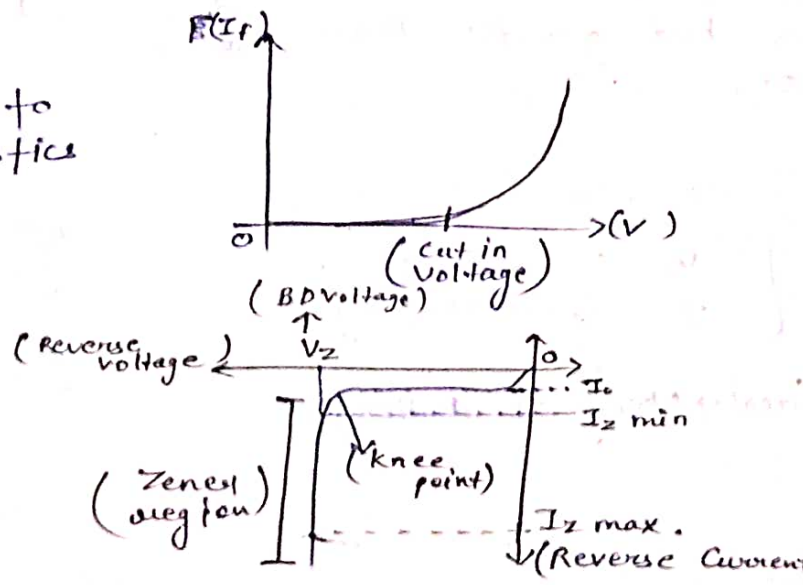 (If)
to
tics
O
>(V )
(cut in
voltage)
(BD voltage)
↑
(Reverse
voltage)
Vz
O
Io
Iz min
(knee
point)
(Zener
region)
Iz max.
(Reverse Curren